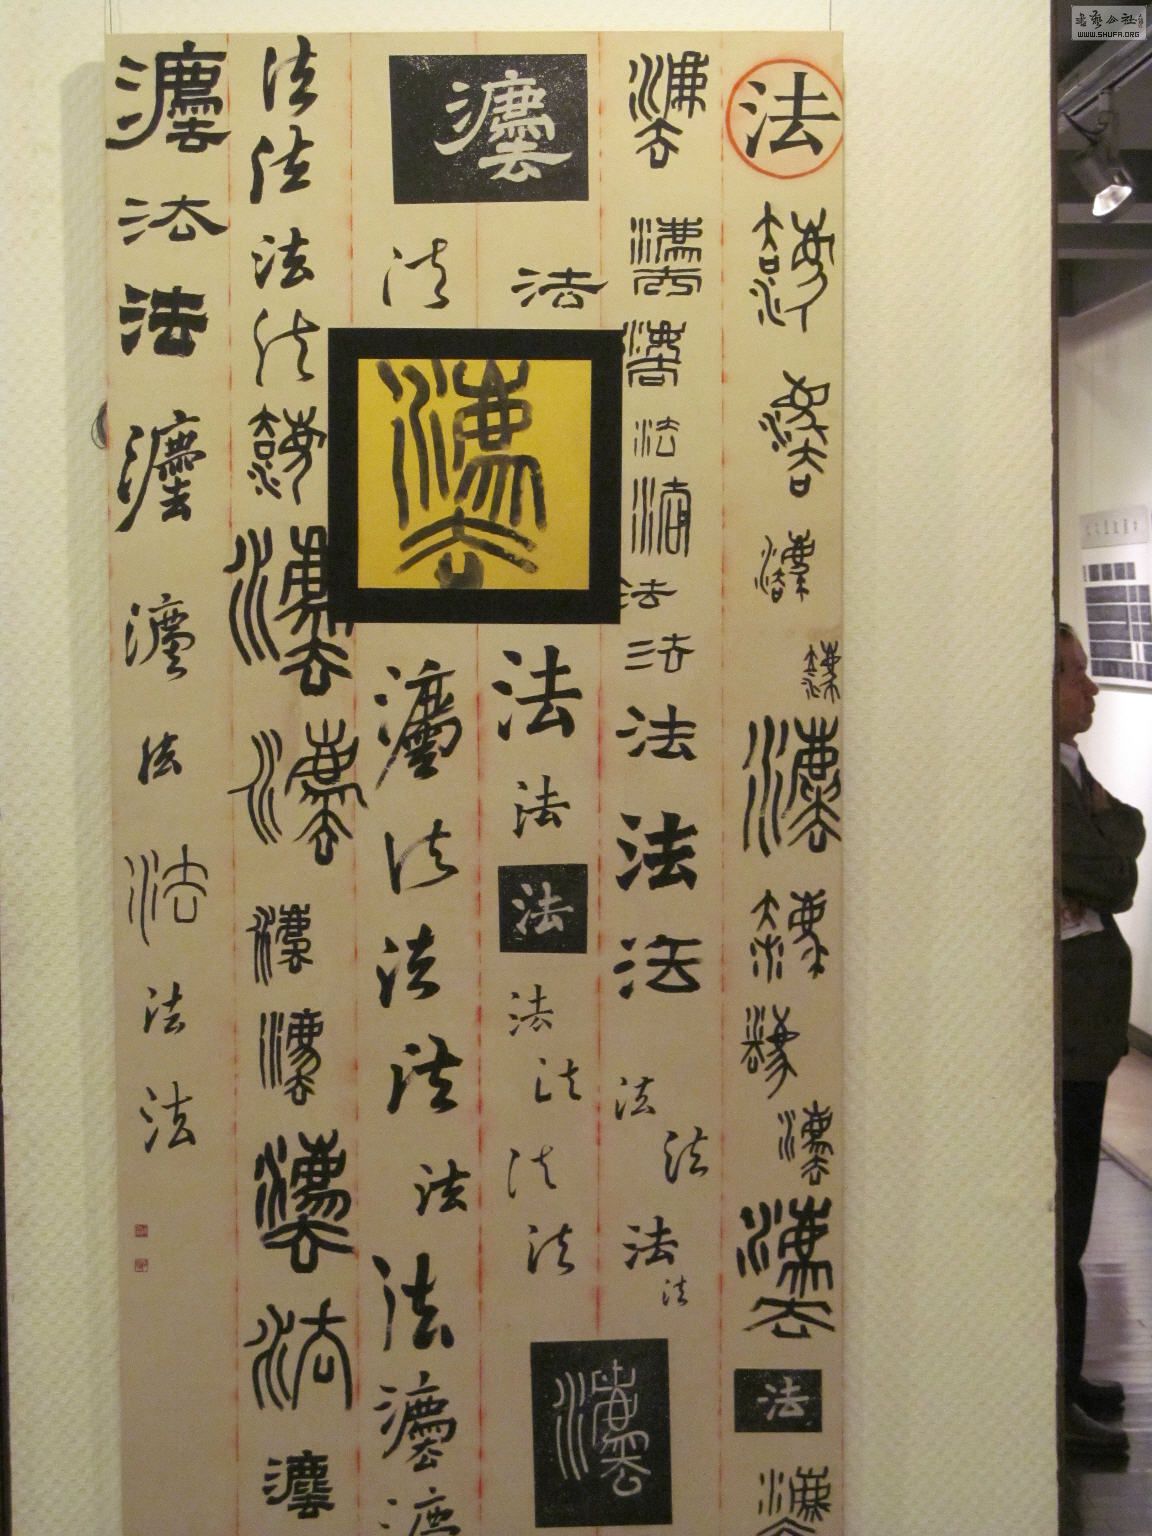 法灋灋灋灋灋灋灋灋灋法灋
灋灋灋法法法法法法法法法法法
灋法灋法法法法法法法灋
法灋法法法法法灋灋
法法法法灋灋灋灋灋灋法灋
灋法法灋灋法法法法
書藝公社
WWW.SHUFA.ORG